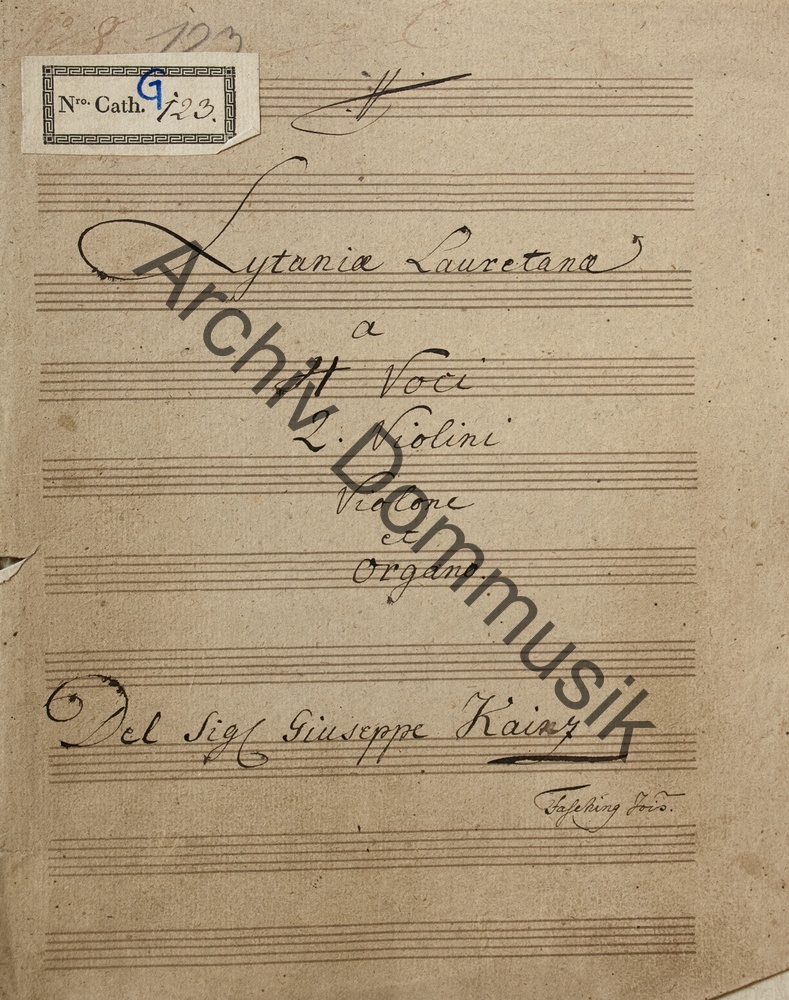 123
Nro. Cath. G 123.
Lytaniæ Lauretanæ
a
4 Voci
2. Violini
Violone
et
Organo.
Del Sig Giuseppe Kainz
Fasching Jois.
Archiv Dommusik